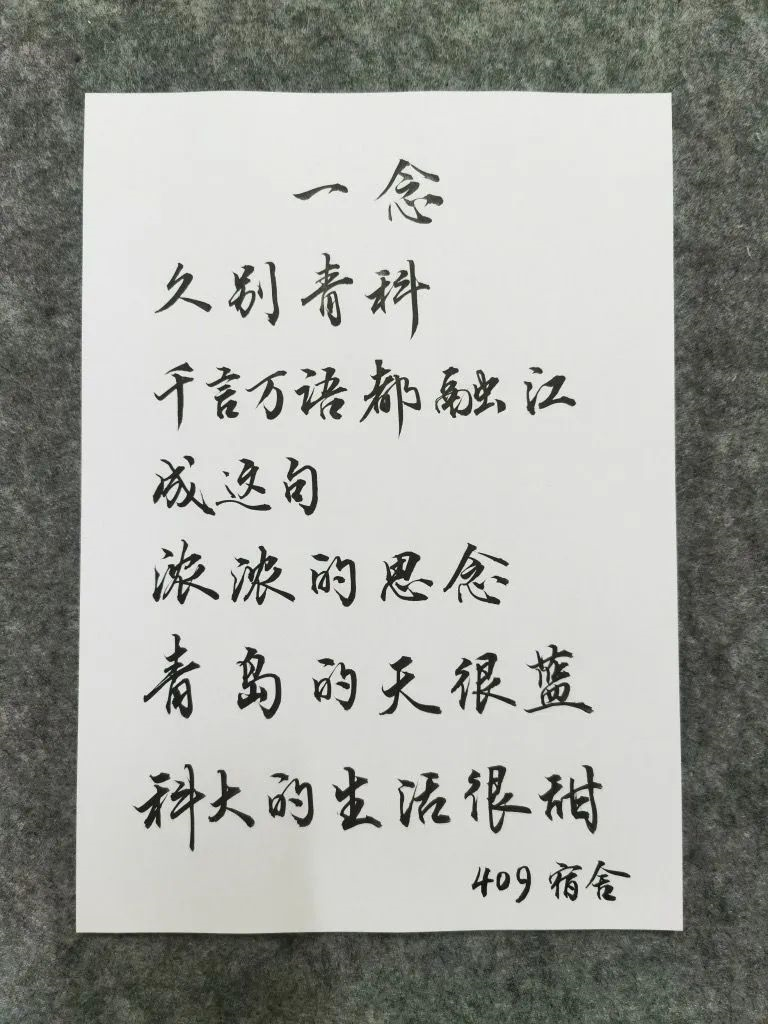 一念
久别青科
千言万语都融江
成这句
浓浓的思念
青岛的天很蓝
科大的生活很甜
409宿舍